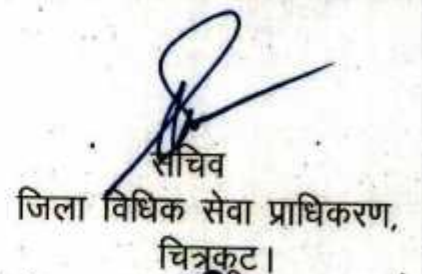 सचिव
जिला विधिक सेवा प्राधिकरण,
चित्रकूट।